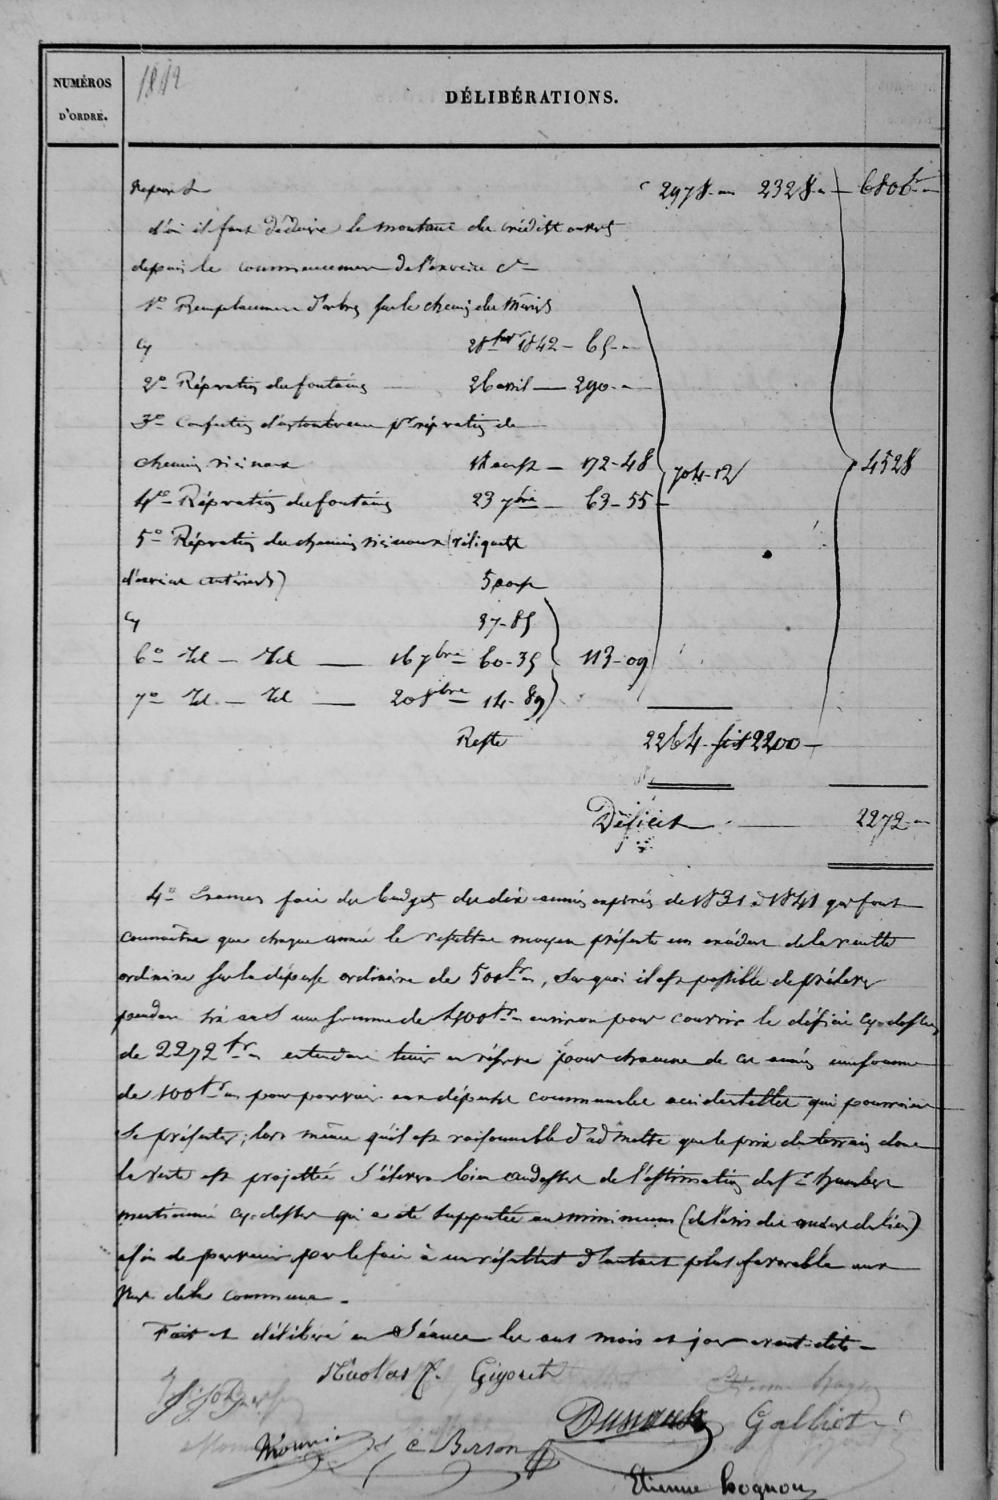 NUMÉROS D'ORDRE.
1842
DÉLIBÉRATIONS.
Report 2978 2328 6806
d'où il faut déduire le montant des crédits ouverts
depuis le commencement de l'exercice
1° Remplacement d'arbres sur le chemin des
Cy 28 1842 – 65
2° Réparation des fontaines 26 avril – 290
3° Confection d' pr réparation de
chemins vicinaux août – 172-48 704-12 4528
4° Réparation des fontaines 23 7bre – 63-55
5° Réparation des chemins vicinaux (reliquat
d'exercices antérieurs) 5 août
Cy 37-85
6° Id – Id – 16 7bre 60-35 113-09
7° Id – Id – 20 8bre 14-89
Reste 2264 – soit 2200
Déficit 2272
4° Examen fait des budgets des dix années expirées de 1831 à 1841 qui font
connaître que chaque année le résultat moyen présente un excédent de la recette
ordinaire sur la dépense ordinaire de 500 fr, sur quoi il est possible de prélever
pendant six ans une somme de 400 fr environ pour couvrir le déficit cy-dessus
de 2272 fr et tenir en réserve pour chacune de ces années une somme
de 100 fr pour pourvoir aux dépenses communales accidentelles qui pourraient
se présenter; lors même qu'il est raisonnable d'admettre que le prix du terrain dont
la vente est projettée s'élèvera bien audessus de l'estimation du Sr Humbert
mentionnée cy-dessus qui a été supputée au minimum (de l'avis des)
afin de parvenir par le fait à un résultat d'autant plus favorable aux
de la commune.
Fait et délibéré en Séance les ans mois et jour avant dits –
Nicolas F. Gigout
Galliot
Mounier C Berson
Etienne hognon